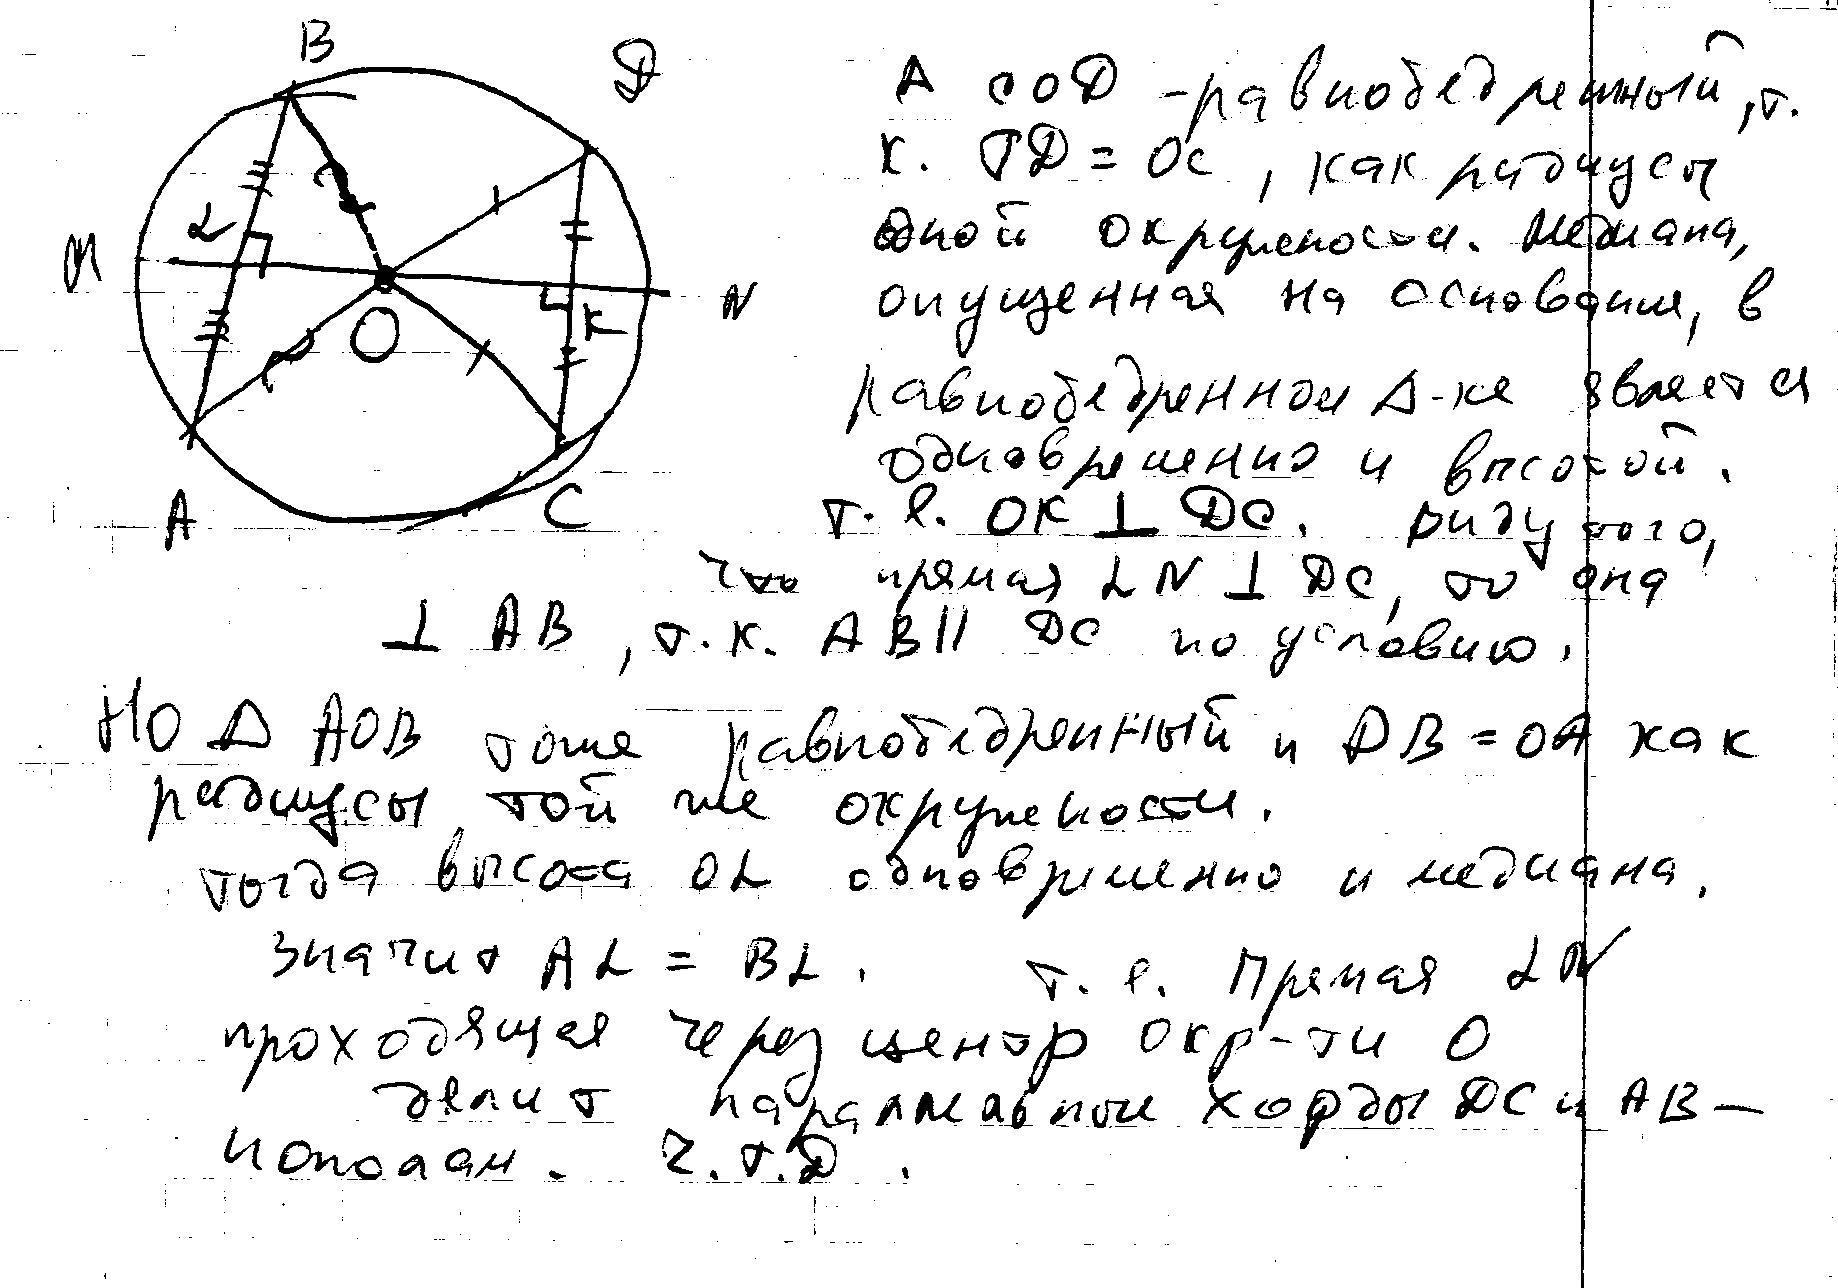 B
D
L
M
N
K
O
A
C
Δ COD - равнобедренный, т.
к. OD = OC, как радиусы
одной окружности. Медиана,
опущенная на основание, в
равнобедренном Δ-ке является
одновременно и высотой.
т. е. OK ⊥ DC. Ввиду того,
что прямая LN ⊥ DC, то она
⊥ AB, т.к. AB || DC по условию.
Но Δ AOB тоже равнобедренный и OB = OA как
радиусы той же окружности.
тогда высота OL одновременно и медиана.
значит AL = BL. т. е. Прямая LN
проходящая через центр окр-ти O
делит параллельные хорды DC и AB –
пополам. Ч.Т.Д.